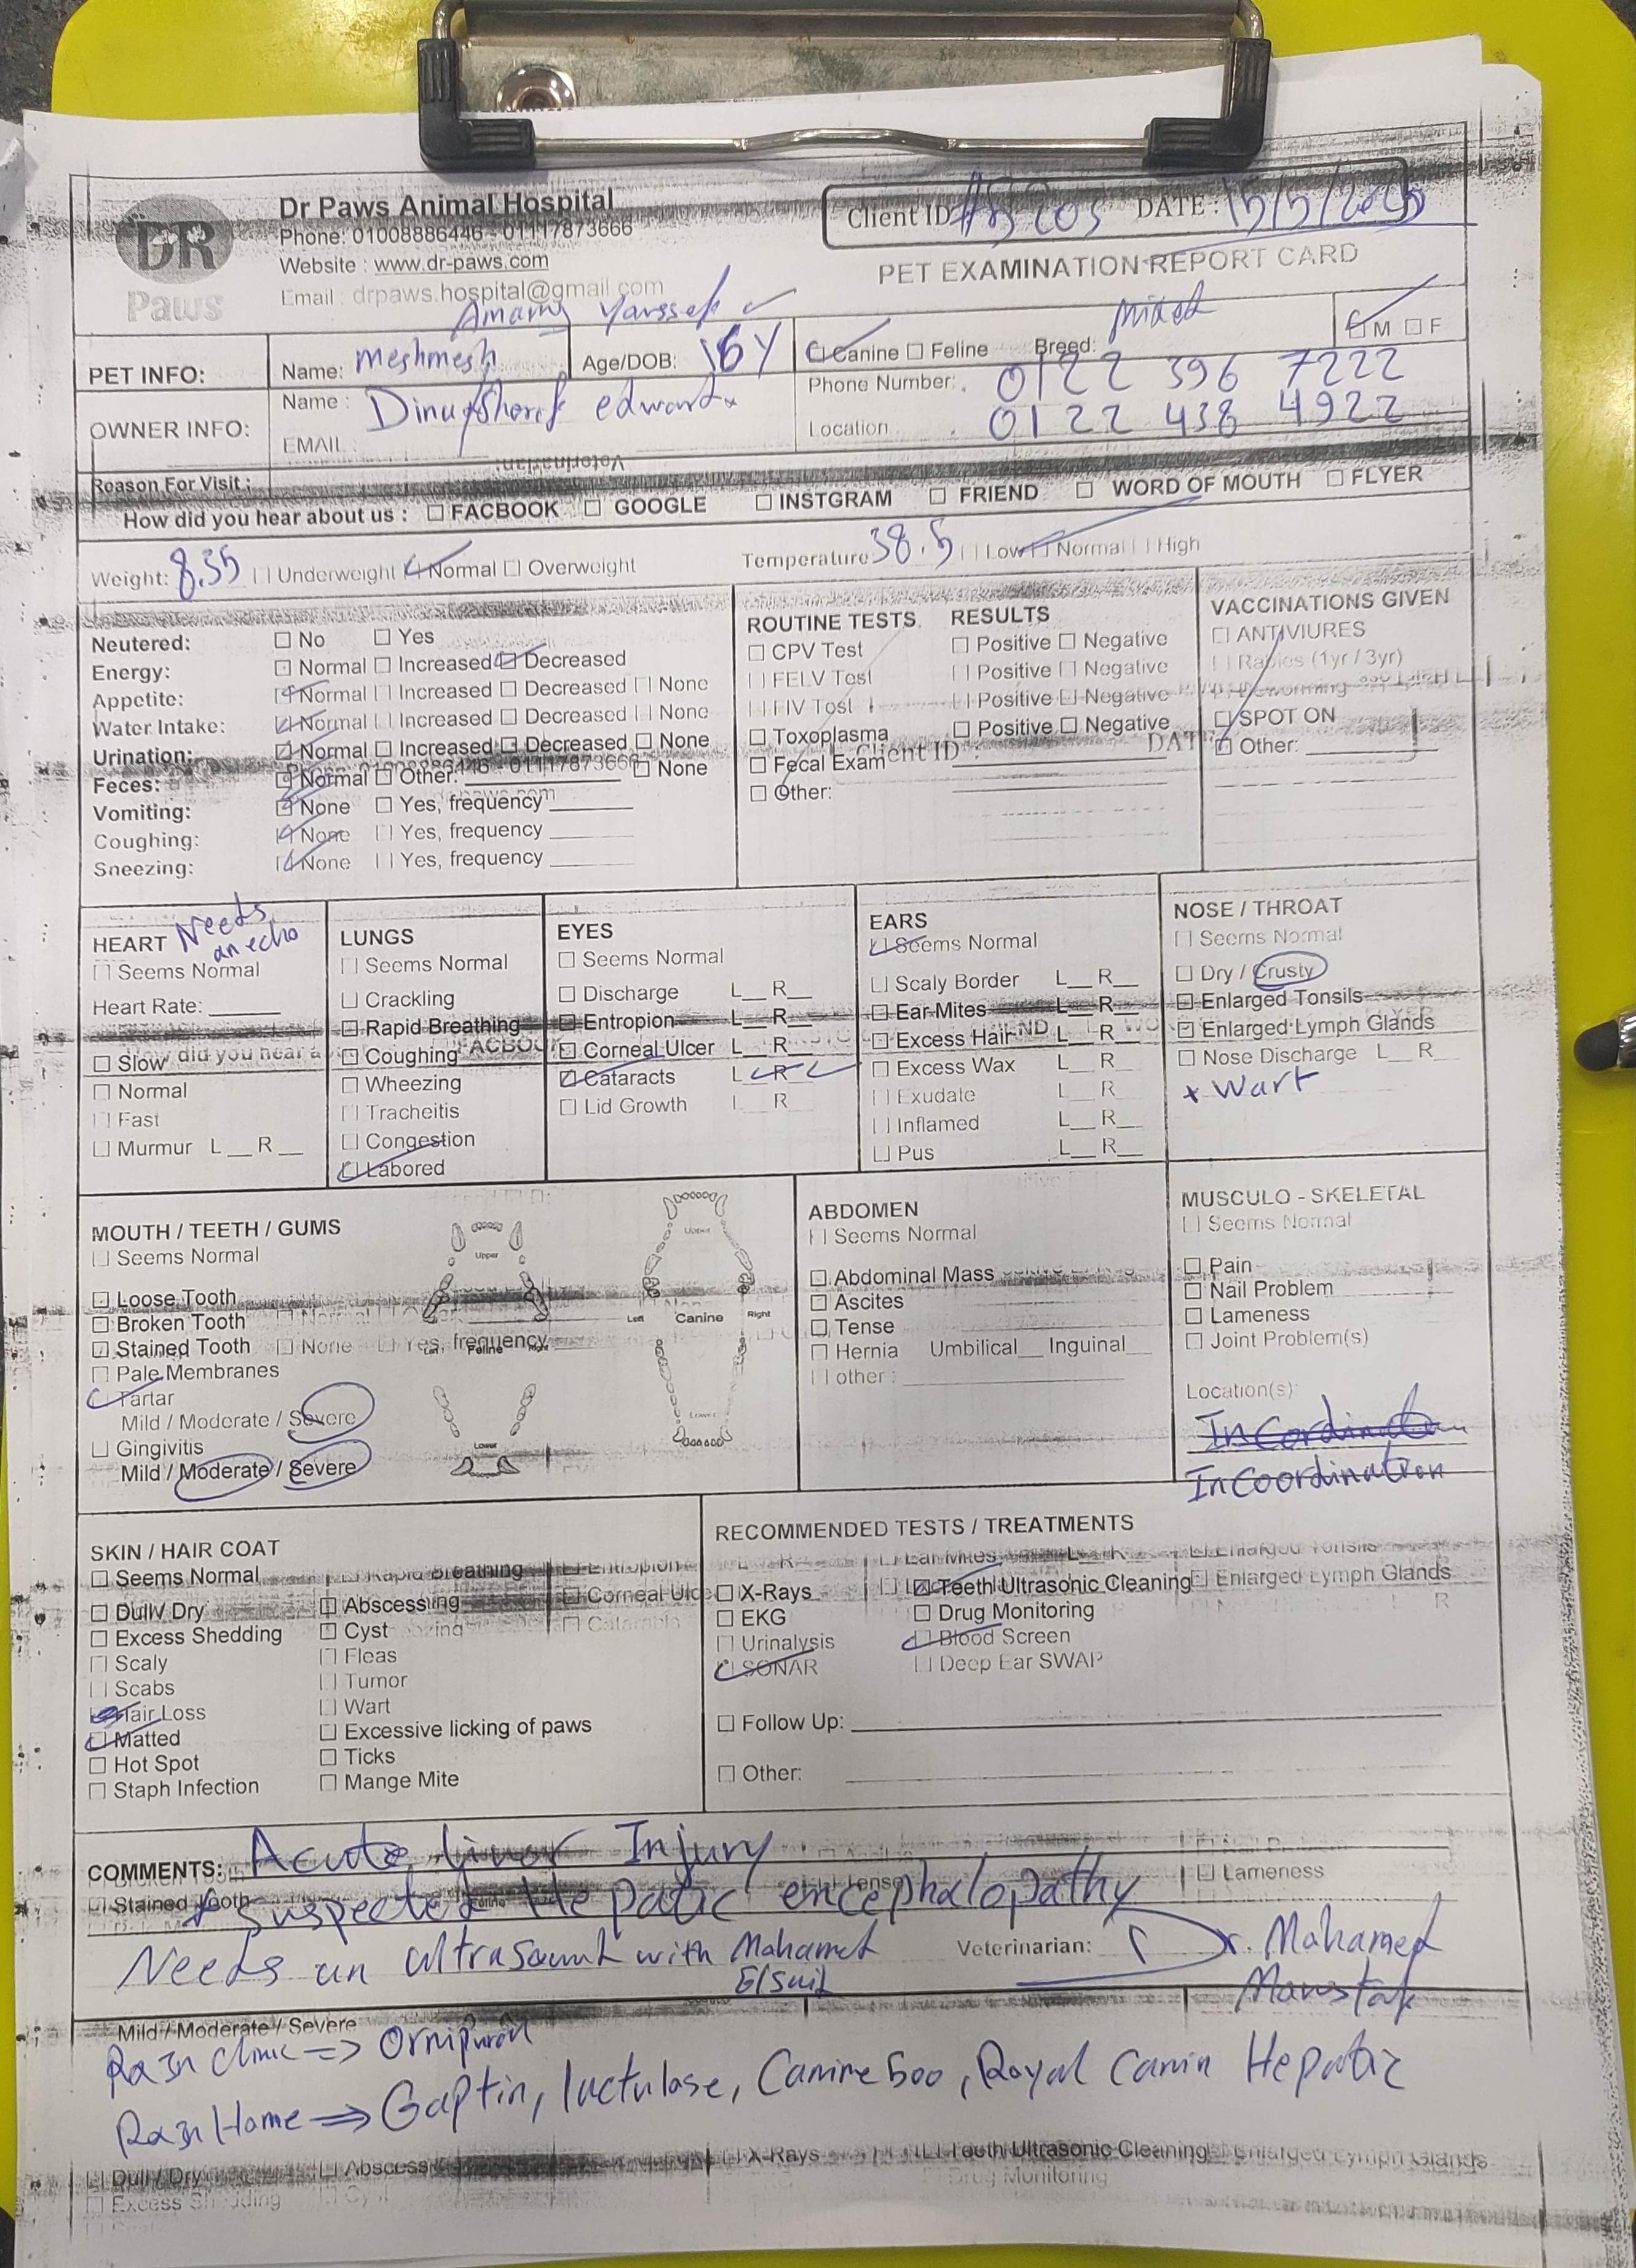 DR
Paws
Dr Paws Animal Hospital
Phone: 01008886446 - 01117873666
Website : www.dr-paws.com
Email : drpaws.hospital@gmail.com
Client ID DATE :
PET EXAMINATION REPORT CARD
Amany Youssef
PET INFO: Name: meshmesh Age/DOB: 16Y Canine Feline Breed: mixed M F
OWNER INFO: Name : edward Phone Number: 0122 396 7222
EMAIL : Location 0122 438 4922
Veterinarian:
Reason For Visit :
How did you hear about us : FACBOOK GOOGLE INSTGRAM FRIEND WORD OF MOUTH FLYER
Weight: 8.35 Underweight Normal Overweight Temperature 38.5 Low Normal High
Neutered: No Yes
Energy: Normal Increased Decreased
Appetite: Normal Increased Decreased None
Water Intake: Normal Increased Decreased None
Urination: Normal Increased Decreased None
Feces: Normal Other: None
Vomiting: None Yes, frequency
Coughing: None Yes, frequency
Sneezing: None Yes, frequency
ROUTINE TESTS RESULTS
CPV Test Positive Negative
FELV Test Positive Negative
FIV Test Positive Negative
Toxoplasma Positive Negative
Fecal Exam
Client ID :
Other:
VACCINATIONS GIVEN
ANTIVIURES
Rabies (1yr / 3yr)
Deworming
SPOT ON
Other:
HEART Needs
an echo
Seems Normal
Heart Rate:
Slow
Normal
Fast
Murmur L R
LUNGS
Seems Normal
Crackling
Rapid Breathing
Coughing
Wheezing
Tracheitis
Congestion
Labored
EYES
Seems Normal
Discharge L R
Entropion L R
Corneal Ulcer L R
Cataracts L R
Lid Growth L R
EARS
Seems Normal
Scaly Border L R
Ear Mites L R
Excess Hair L R
Excess Wax L R
Exudate L R
Inflamed L R
Pus L R
NOSE / THROAT
Seems Normal
Dry / Crusty
Enlarged Tonsils
Enlarged Lymph Glands
Nose Discharge L R
+ Wart
MOUTH / TEETH / GUMS
Seems Normal
Loose Tooth
Broken Tooth
Stained Tooth
None Yes, frequency
Pale Membranes
Tartar
Mild / Moderate / Severe
Gingivitis
Mild / Moderate / Severe
Upper
Left Feline Right
Lower
Upper
Left Canine Right
Lower
ABDOMEN
Seems Normal
Abdominal Mass
Ascites
Tense
Hernia Umbilical Inguinal
other :
MUSCULO - SKELETAL
Seems Normal
Pain
Nail Problem
Lameness
Joint Problem(s)
Location(s):
Incoordination
SKIN / HAIR COAT
Seems Normal
Dull/ Dry
Excess Shedding
Scaly
Scabs
Hair Loss
Matted
Hot Spot
Staph Infection
Abscess
Cyst
Fleas
Tumor
Wart
Excessive licking of paws
Ticks
Mange Mite
RECOMMENDED TESTS / TREATMENTS
X-Rays Teeth Ultrasonic Cleaning Enlarged Lymph Glands
EKG Drug Monitoring
Urinalysis Blood Screen
SONAR Deep Ear SWAP
Follow Up:
Other:
COMMENTS: Acute liver Injury
Stained Tooth Tense Lameness
* Suspected Hepatic encephalopathy
Needs an ultrasound with Mohamed
Veterinarian: Dr. Mohamed
Mild / Moderate / Severe
clinic => Ornipural
Home => Gaptin, lactulose, Canine 500, Royal Canin Hepatic
Dull / Dry Abscess X-Rays Teeth Ultrasonic Cleaning Enlarged Lymph Glands
Excess Shedding Cyst Drug Monitoring